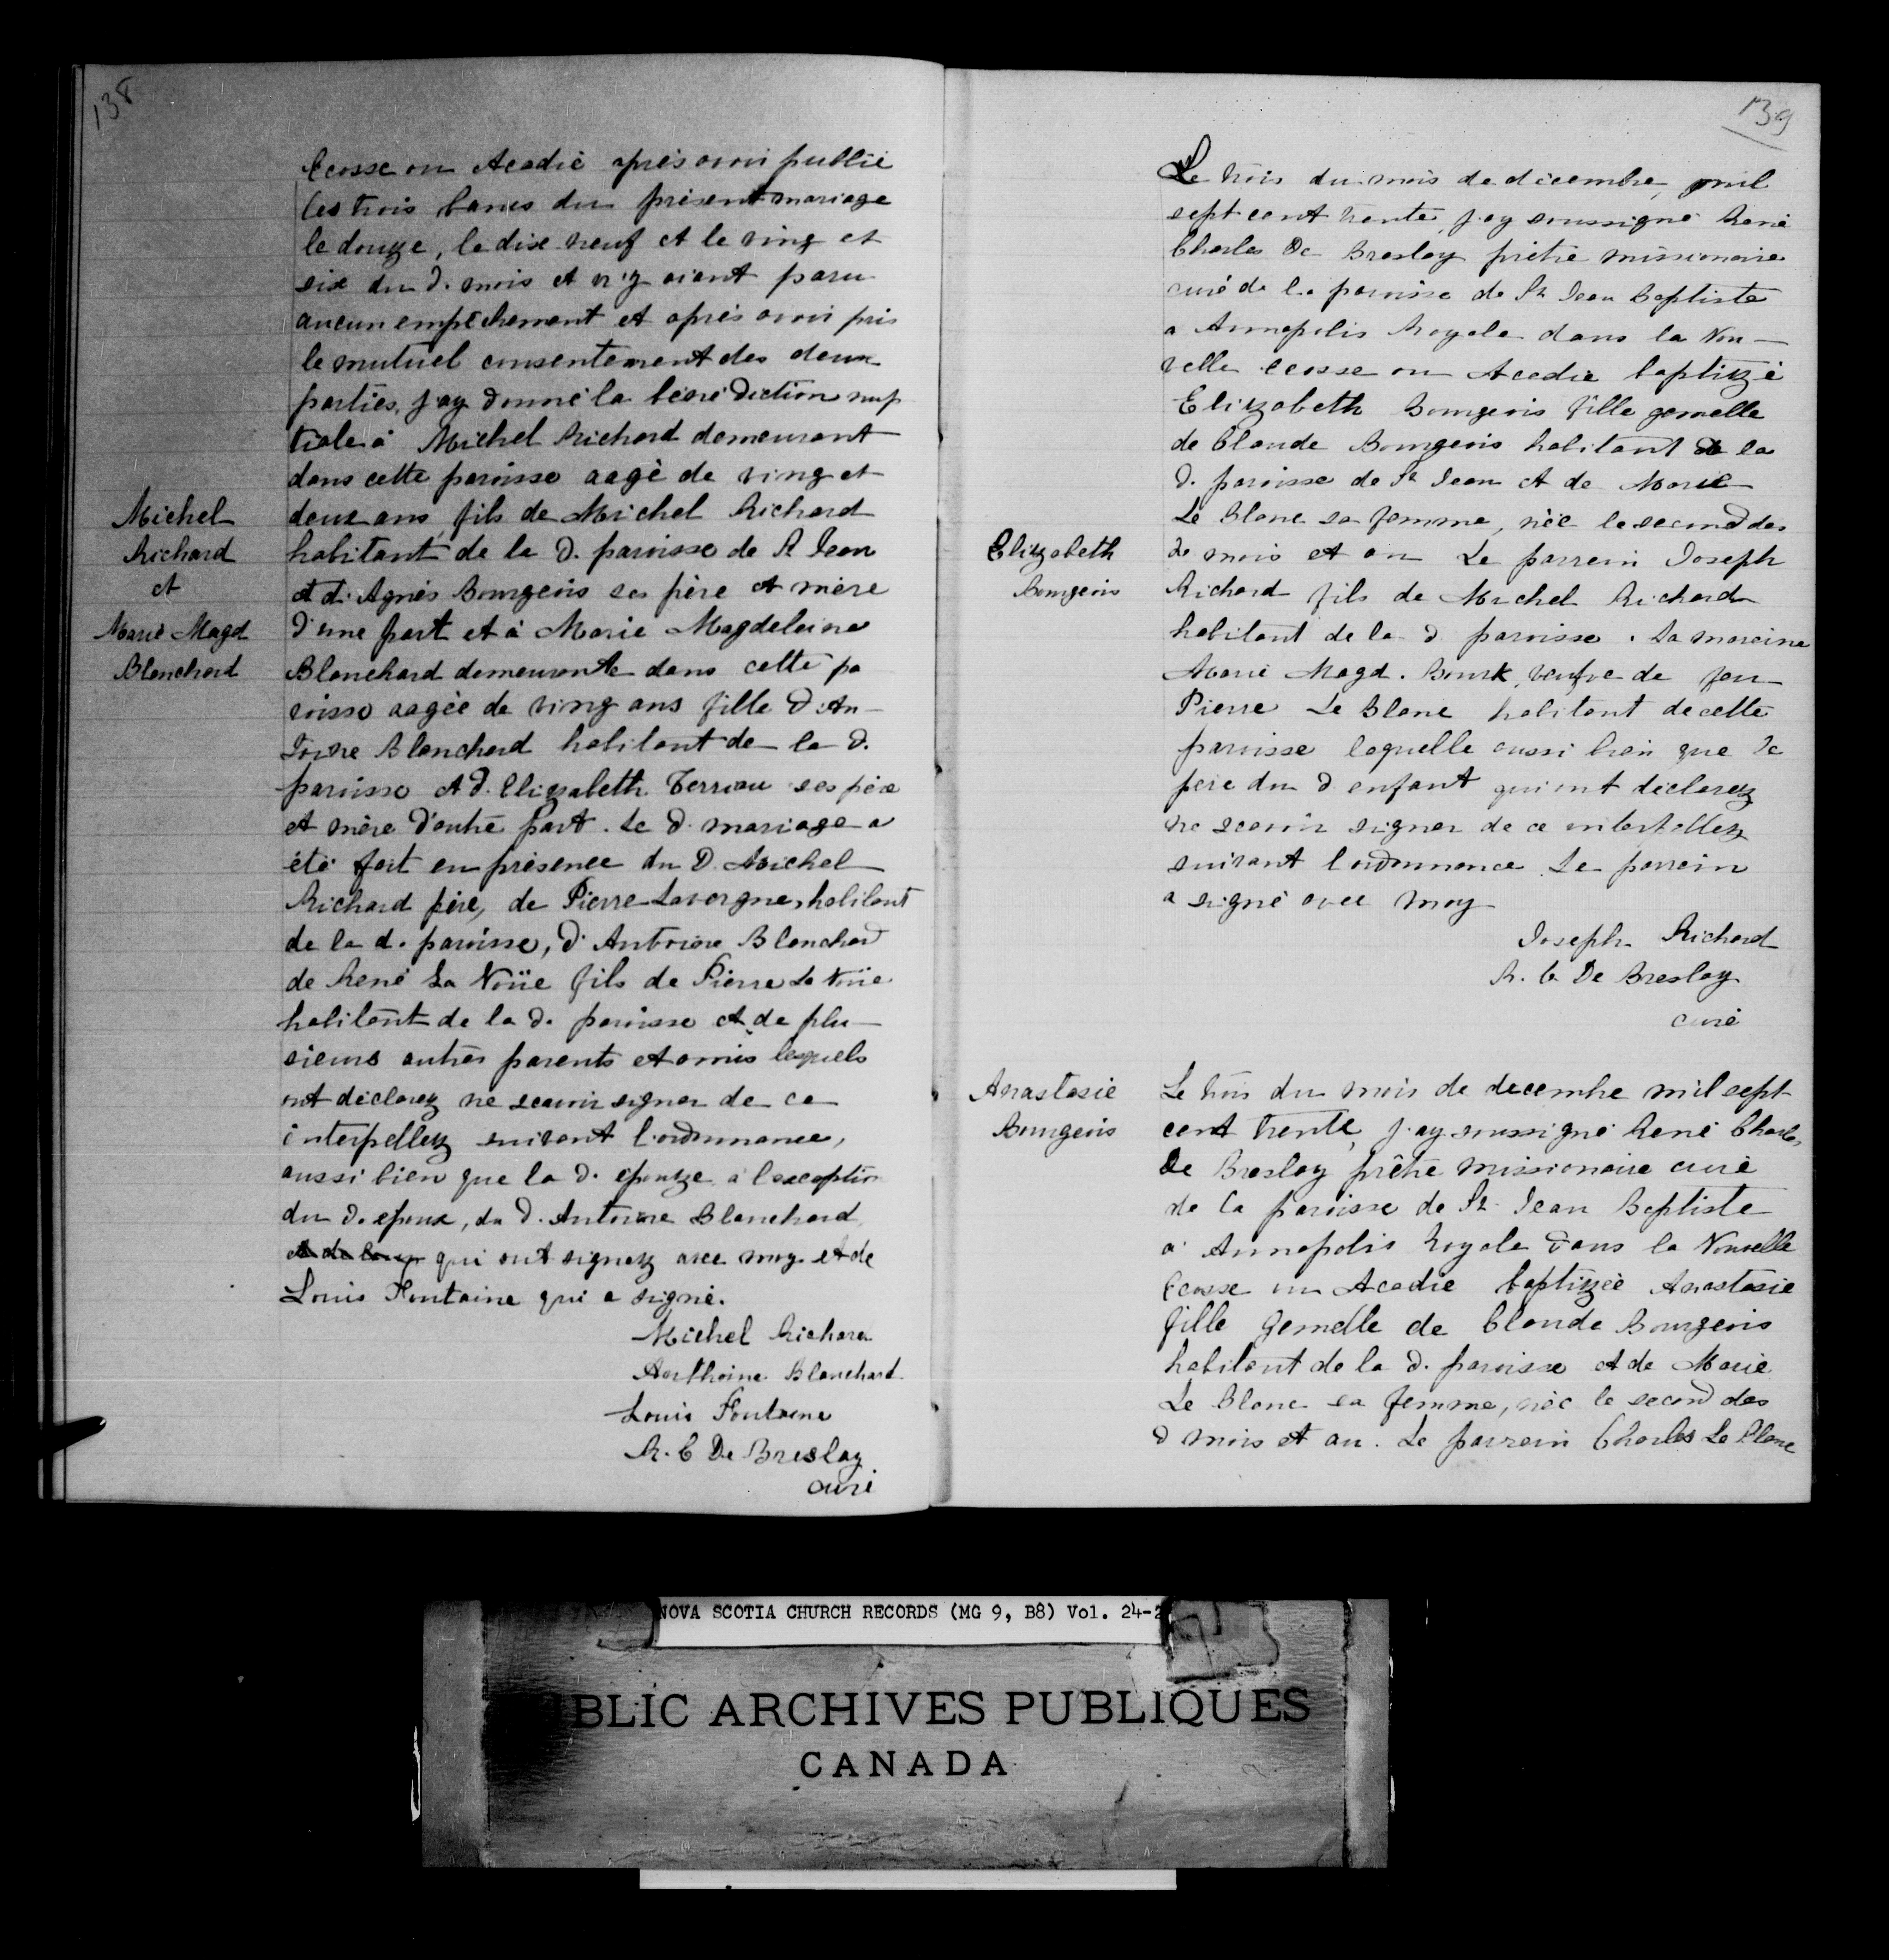 138
Ecosse ou Acadie après avoir publié
les trois bancs du présent mariage
le douze, le dix neuf et le ving et
six du d. mois et n'y aiant paru
aucun empêchement et après avoir pris
le mutuel consentement des deux
parties, j'ay donné la bénédiction nup
tiale à Michel Richard demeurant
dans cette paroisse aagé de ving et
deux ans, fils de Michel Richard
habitant de la d. paroisse de St Jean
et d'Agnès Bourgeois ses père et mère
d'une part et à Marie Magdelaine
Blanchard demeurante dans cette pa
roisse aagée de ving ans fille d'An-
toine Blanchard habitant de la d.
paroisse et d'Elizabeth Terriau ses père
et mère d'autre part. Le d. mariage a
été fait en présence du D. Michel
Richard père, de Pierre Lavergne, habitant
de la d. paroisse, d'Antoine Blanchard
de René La Noüe fils de Pierre La Noüe
habitant de la d. paroisse et de plu-
sieurs autres parents et amis lesquels
ont déclarez ne scavoir signer de ce
interpellez suivant l'ordonnance,
aussi bien que la d. epouze, à l'exception
du d. epoux, du d. Antoine Blanchard,
et de Louis qui ont signez avec moy et de
Louis Fontaine qui a signé.
Michel Richard
Anthoine Blanchard
Louis Fontaine
R. C De Breslay
curé
Michel
Richard
et
Marie Magd
Blanchard
139
Le trois du mois de décembre, mil
sept cent trente, j'ay soussigné René
Charles De Breslay prêtre missionaire
curé de la paroisse de St Jean Baptiste
a Annapolis Royale dans la Nou-
velle Ecosse ou Acadie baptizé
Elizabeth Bourgeois fille gemelle
de Claude Bourgeois habitant de la
d. paroisse de St Jean et de Marie
Le Blanc sa femme, née le second des
de mois et an Le parrein Joseph
Richard fils de Michel Richard
habitant de la d paroisse. La mareine
Marie Magd. Bourk, veufve de feu
Pierre Le Blanc habitant de cette
paroisse laquelle aussi bien que le
père du d enfant qui ont déclarez
ne scavoir signer de ce interpellez
suivant l'ordonnance. Le parrein
a signé avec moy
Joseph Richard
R. C De Breslay
curé
Elizabeth
Bourgeois
Anastasie
Bourgeois
Le trois du mois de decembre mil sept
cent trente, j'ay soussigné René Charles
De Breslay prêtre missionaire curé
de la paroisse de St Jean Baptiste
a Annapolis Royale dans la Nouvelle
Ecosse ou Acadie baptizée Anastasie
fille Gemelle de Claude Bourgeois
habitant de la d. paroisse et de Marie
Le Blanc sa femme, née le second des
d mois et an. Le parrein Charles Le Blanc
NOVA SCOTIA CHURCH RECORDS (MG 9, B8) Vol. 24-2
BLIC ARCHIVES PUBLIQUES
CANADA